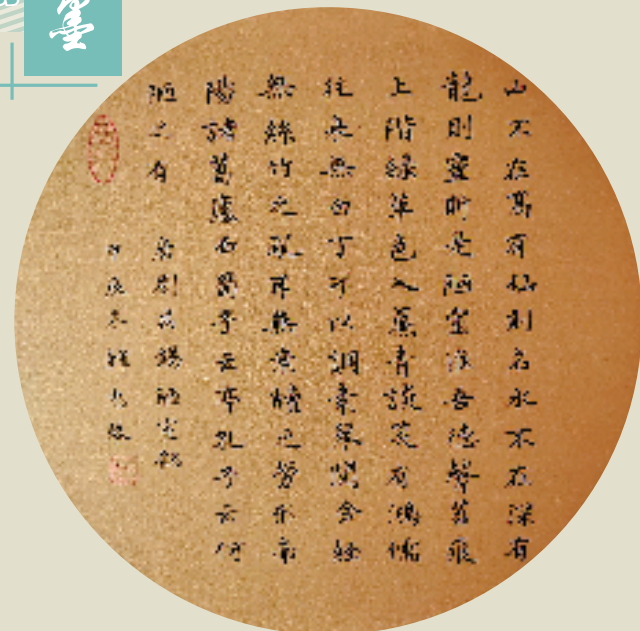 墨
山不在高有仙則名水不在深有
龍則靈斯是陋室惟吾德馨苔痕
上階緑草色入簾青談笑有鴻儒
往来無白丁可以調素琴閱金經
無絲竹之亂耳無案牘之勞形南
陽諸葛廬西蜀子云亭孔子云何
陋之有
唐劉禹錫陋室銘